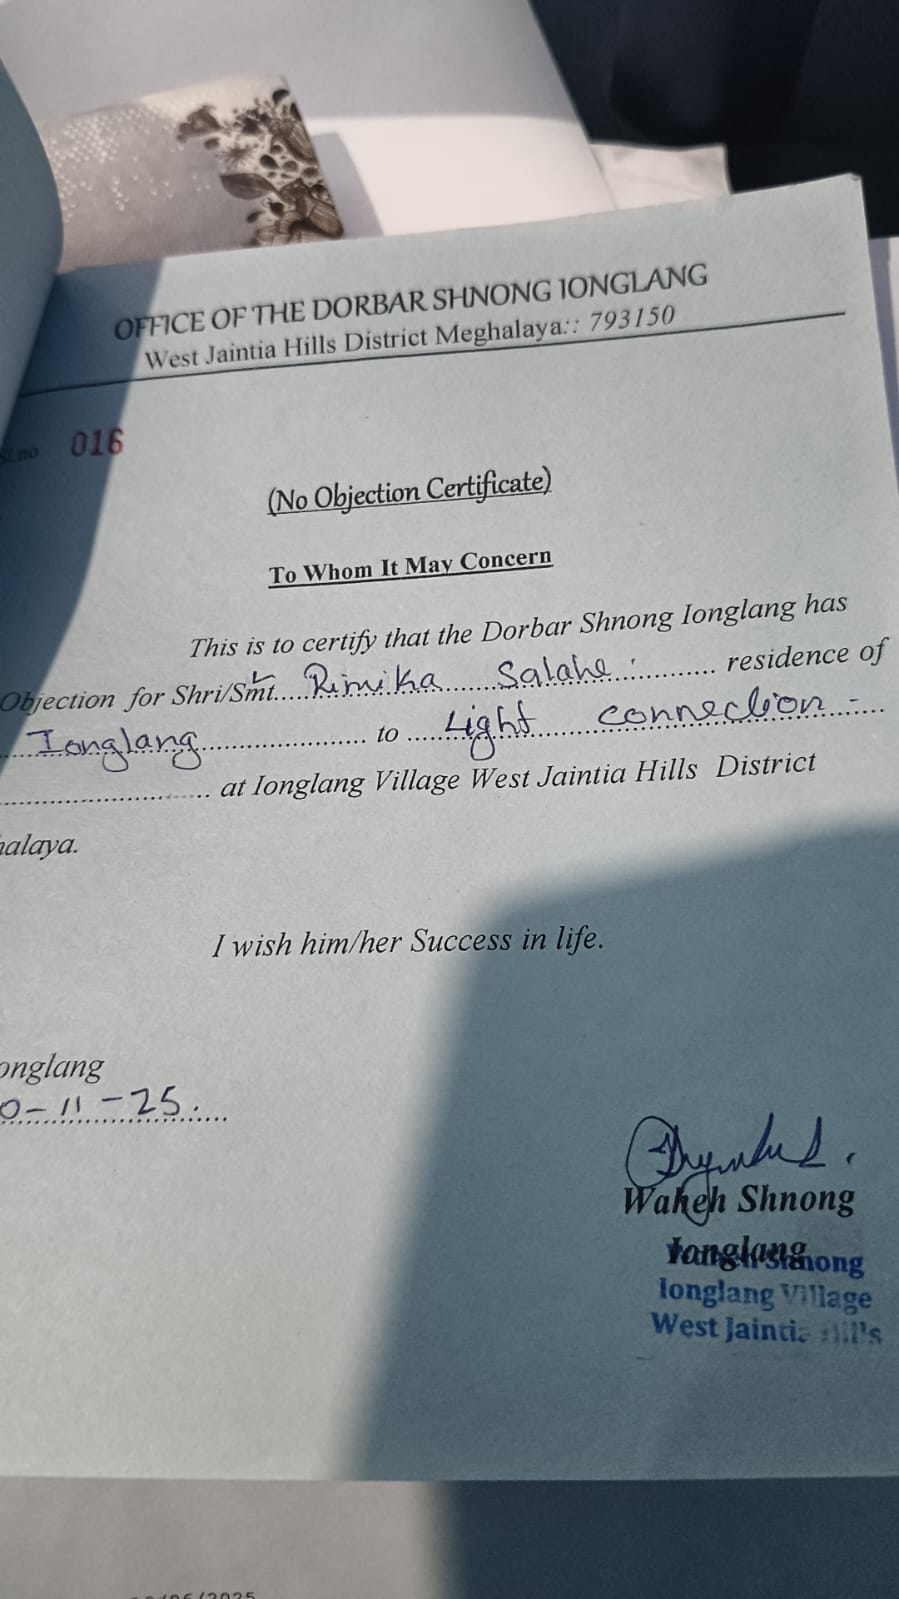 OFFICE OF THE DORBAR SHNONG IONGLANG
West Jaintia Hills District Meghalaya:: 793150
Sl.no 016
(No Objection Certificate)
To Whom It May Concern
This is to certify that the Dorbar Shnong Ionglang has
Objection for Shri/Smt..... Rimika Salahe ............ residence of
Ionglang ..................... to ... Light connection - ....
.............................. at Ionglang Village West Jaintia Hills District
halaya.
I wish him/her Success in life.
onglang
0-11-25.
Waheh Shnong
Ionglang
Shnong
Ionglang Village
West Jaintia Hill's